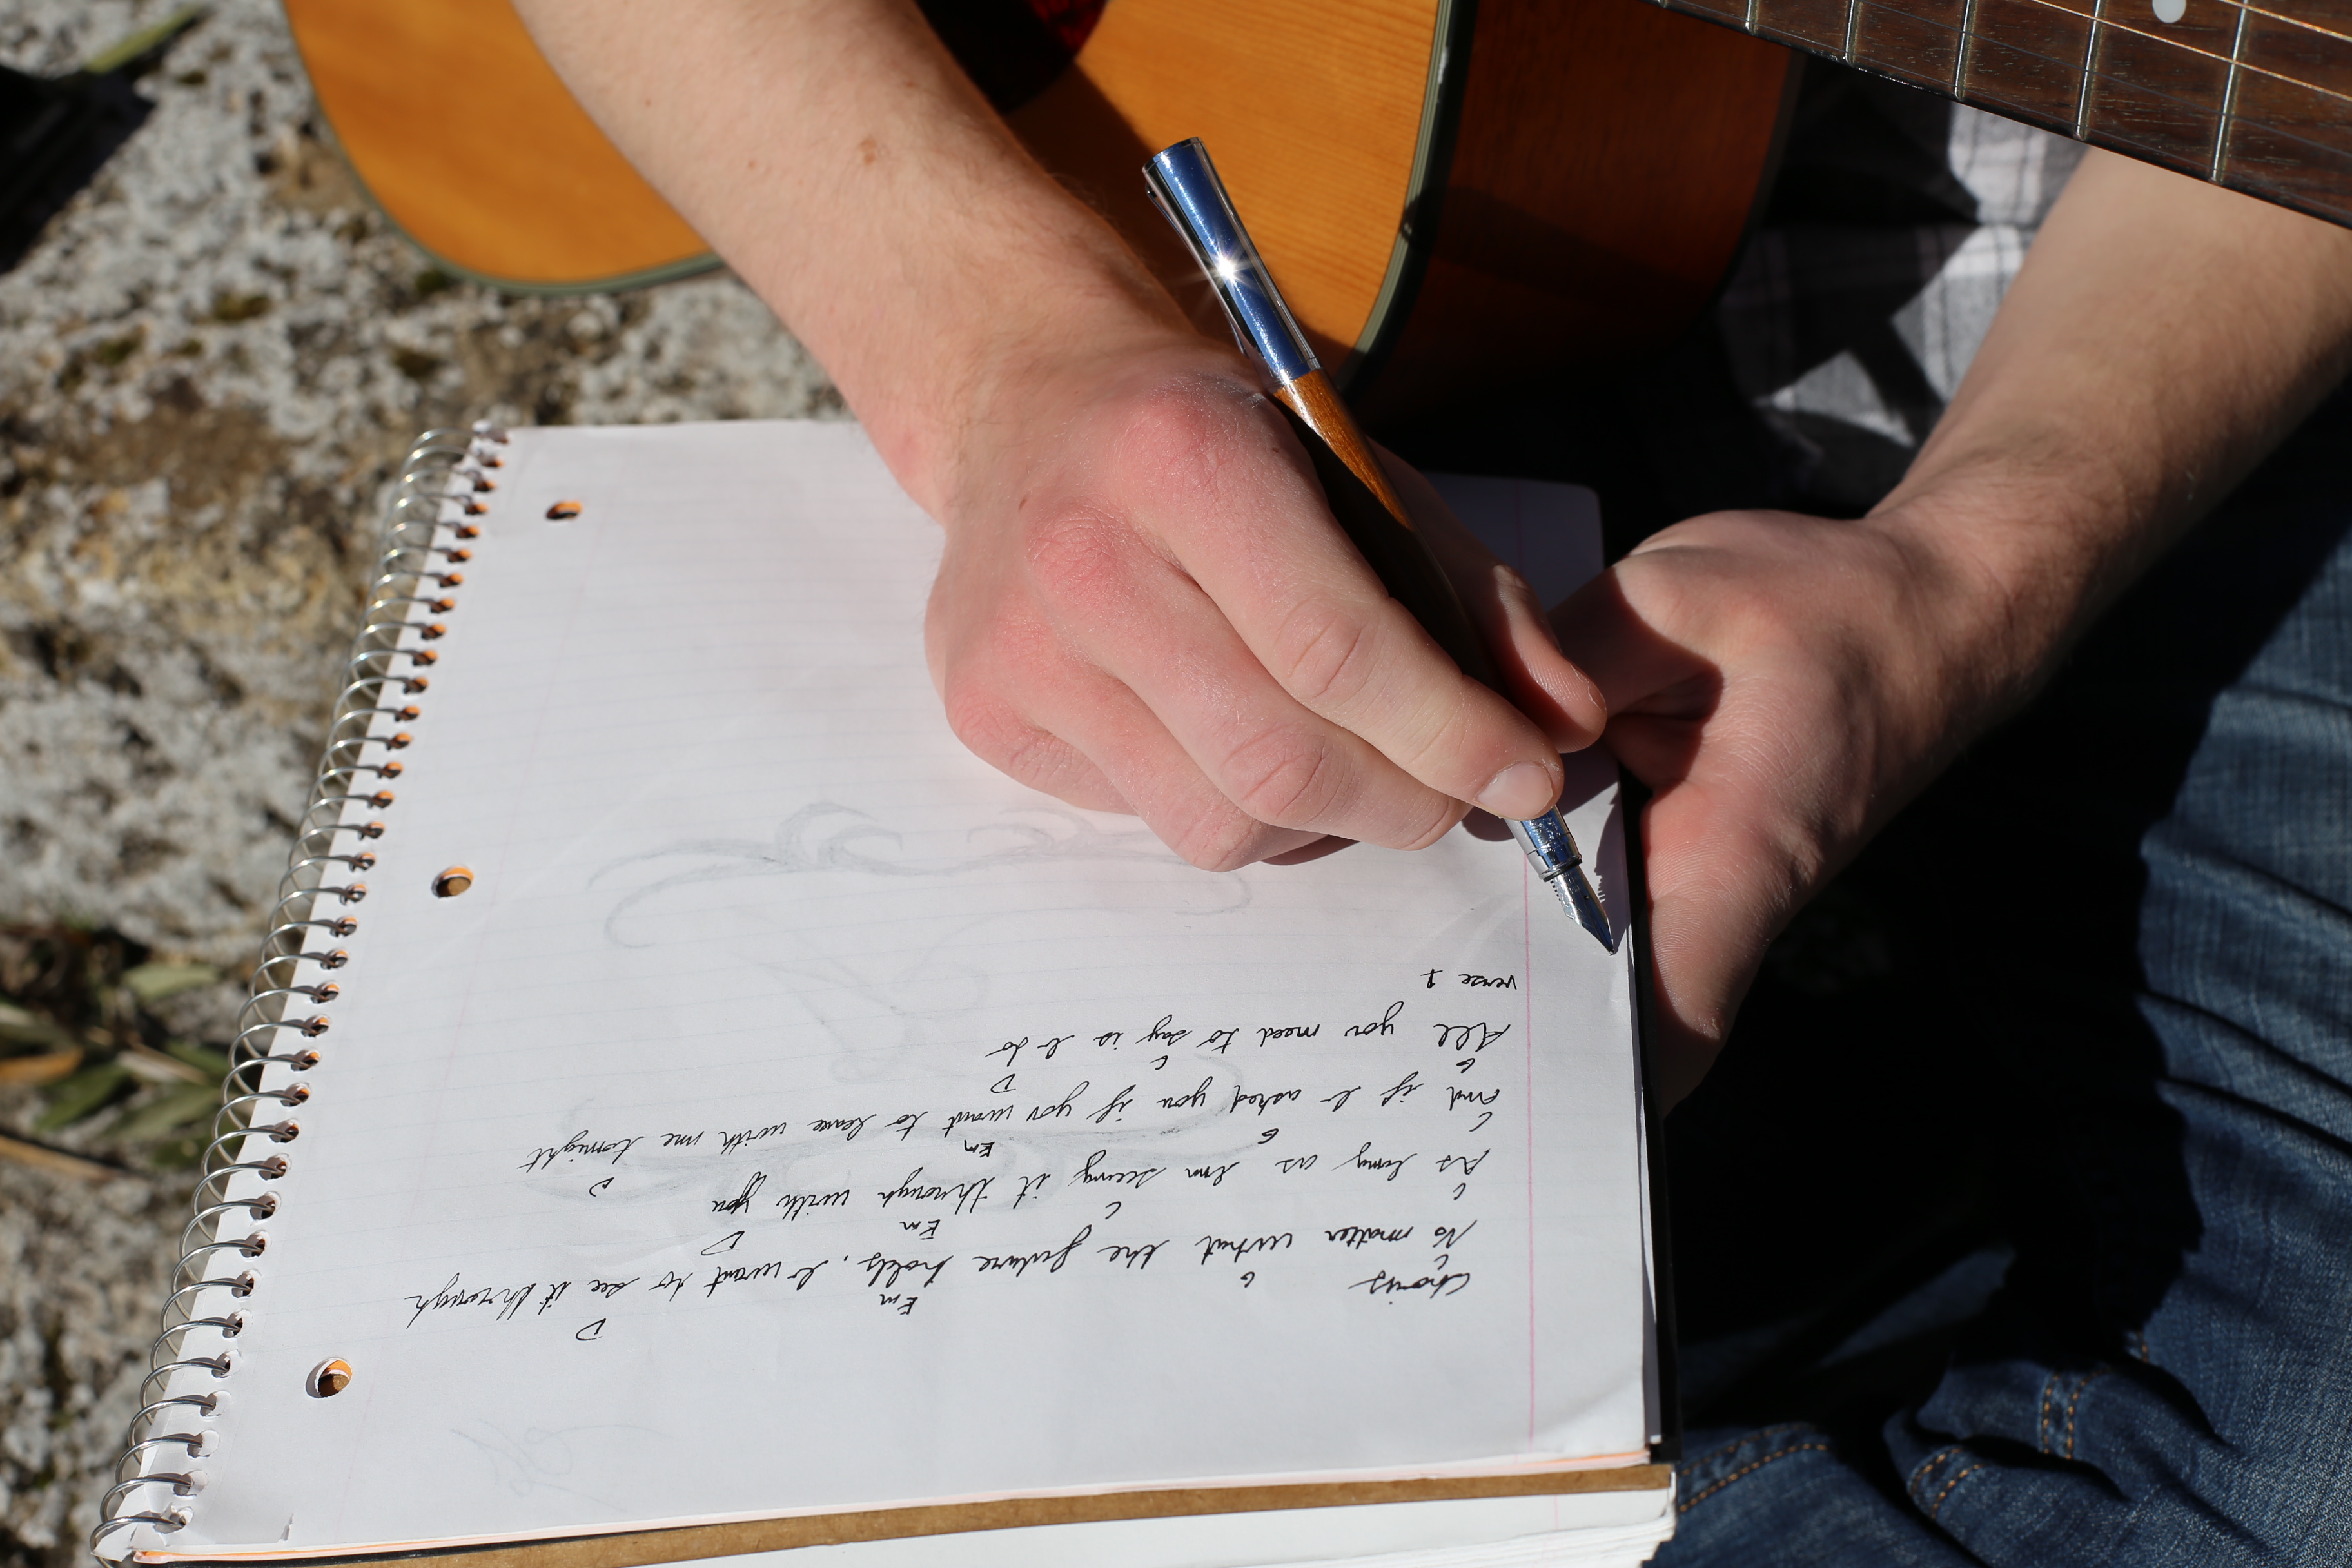 Chorus
C G Em D
No matter what the future holds, I want to see it through
C C Em D
As long as Im seeing it through with you
C G Em D
And if I asked you if you want to leave with me tonight
G C D
All you need to say is I do
verse 1